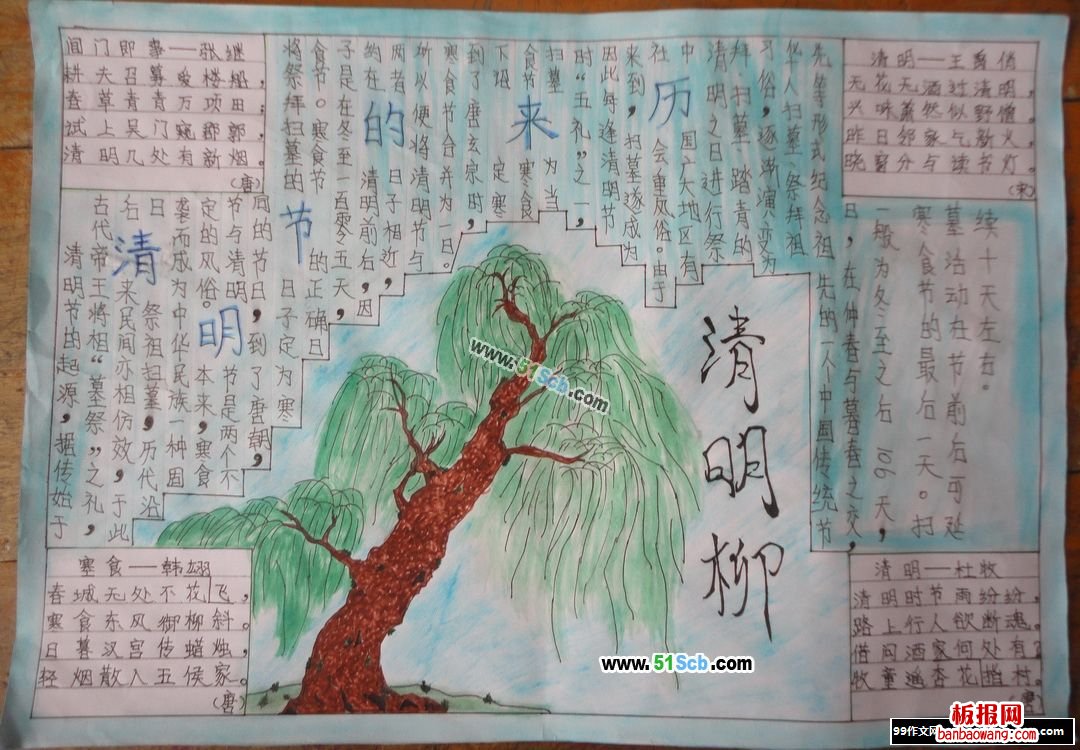 闾门即事—张继
耕夫召募爱楼船，
春草青青万项田；
试上吴门窥郡郭，
清明几处有新烟。
(唐)
清明节的来历
清明节的起源，据传始于
古代帝王将相“墓祭”之礼，
后来民间亦相仿效，于此
日祭祖扫墓，历代沿
袭而成为中华民族一种固
定的风俗。本来，寒食
节与清明节是两个不
同的节日，到了唐朝，
将祭拜扫墓的日子定为寒
食节。寒食节的正确日
子是在冬至一百零五天，
约在清明前后，因
两者日子相近，
所以便将清明节与
寒食节合并为一日。
到了唐玄宗时，
下诏定寒
食节寒食
扫墓为当
时的“五礼”之一，
因此每逢清明节
来到，扫墓遂成为
社会重风俗。由于
中国广大地区有
清明之日进行祭
拜、扫墓、踏青的
习俗，逐渐演变为
华人扫墓、祭拜祖
先等形式纪念祖先的一个中国传统节
日，在仲春与暮春之交，
一般为冬至之后106天，
寒食节的最后一天。扫
墓活动在节前后可延
续十天左右。
清明—王禹偁
无花无酒过清明，
兴味萧然似野僧
昨日邻家乞新火，
晓窗分与读书灯。
(宋)
清明柳
www.51Scb.com
寒食—韩翃
春城无处不花飞，
寒食东风御柳斜。
日暮汉宫传蜡烛，
轻烟散入五侯家。
(唐)
清明—杜牧
清明时节雨纷纷，
路上行人欲断魂。
借问酒家何处有？
牧童遥杏花指村。
(唐)
www.51Scb.com
99作文网
板报网
banbaowang.com